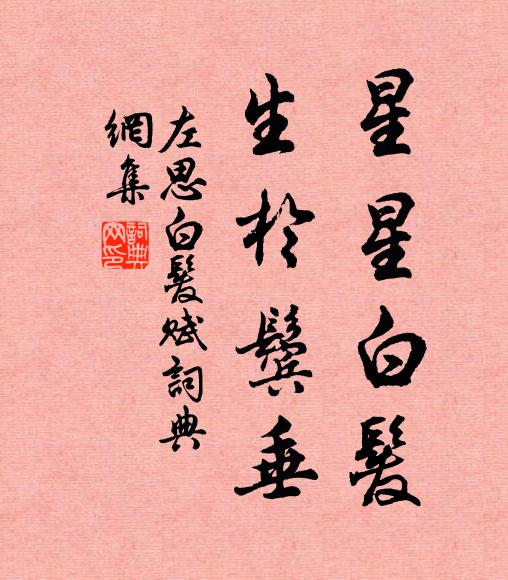 星星白髮
生於鬢垂
左思白髮賦詞典
網集
詞典
网印